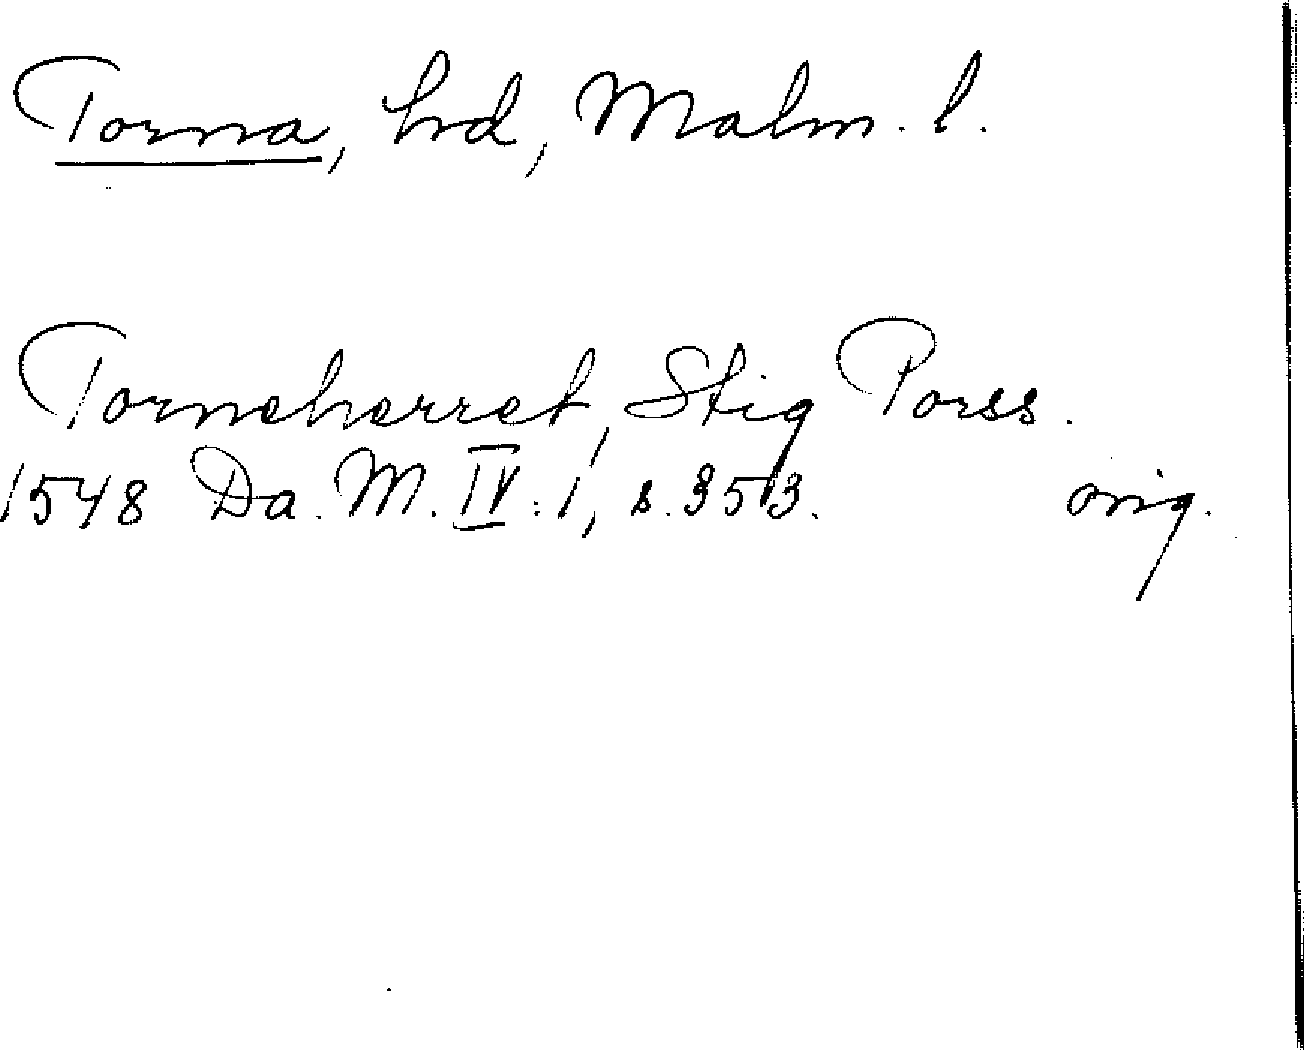 Torna, hrd, Malm. l.
Torneherret, Stig Porss.
1548 Da. M. IV: 1, s. 353. orig.